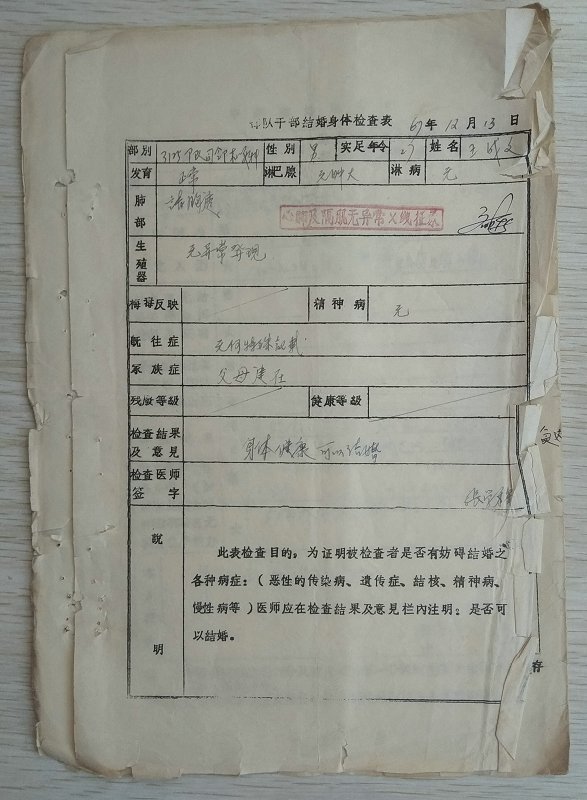 队干部结婚身体检查表 67年12月13日
部别 性别 男 实足年令 27 姓名 王
发育 正常 淋巴腺 无肿大 淋病 无
肺部
心肺及隔肌无异常X线征录
生殖器 无异常发现
梅毒反映 精神病 无
既往症 无何特殊记载
家族症 父母健在
残废等级 健康等级
检查结果及意見 身体健康 可以结婚
检查医师签字 张
説明
此表检查目的，为证明被检查者是否有妨碍结婚之
各种病症：（恶性的传染病、遗传症、结核、精神病、
慢性病等）医师应在检查结果及意見栏內注明：是否可
以结婚。
存